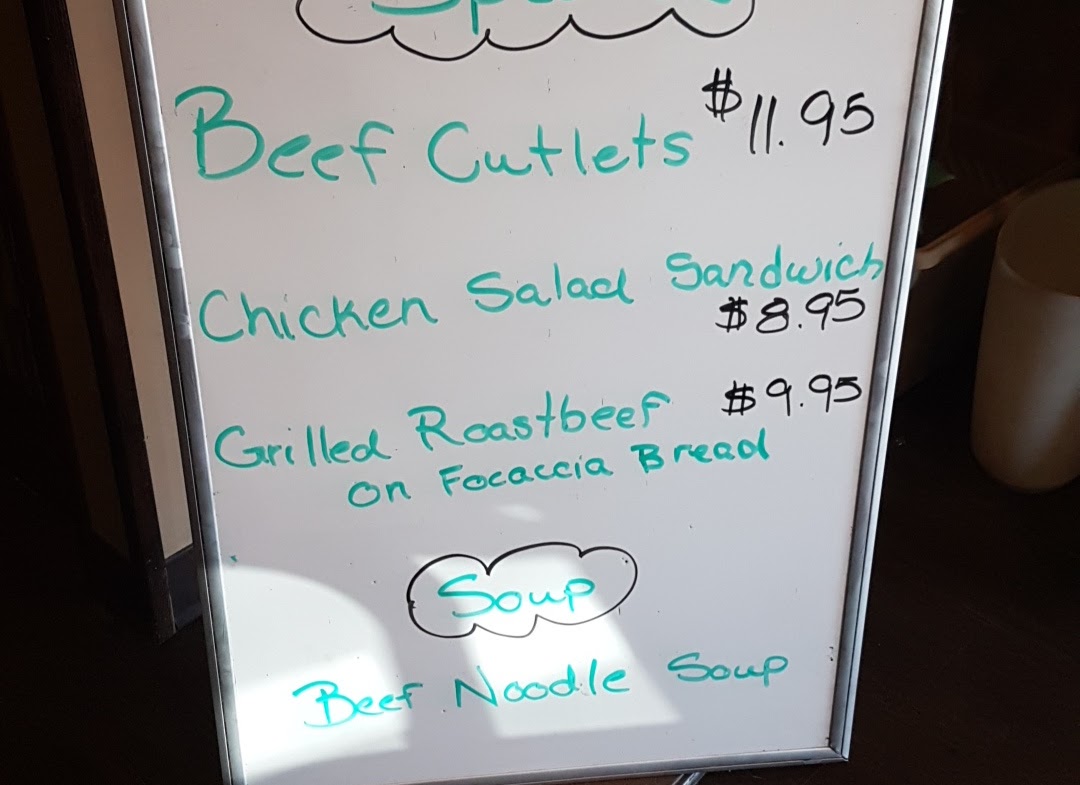 Beef Cutlets $11.95
Chicken Salad Sandwich
$8.95
Grilled Roastbeef $9.95
on Focaccia Bread
Soup
Beef Noodle Soup